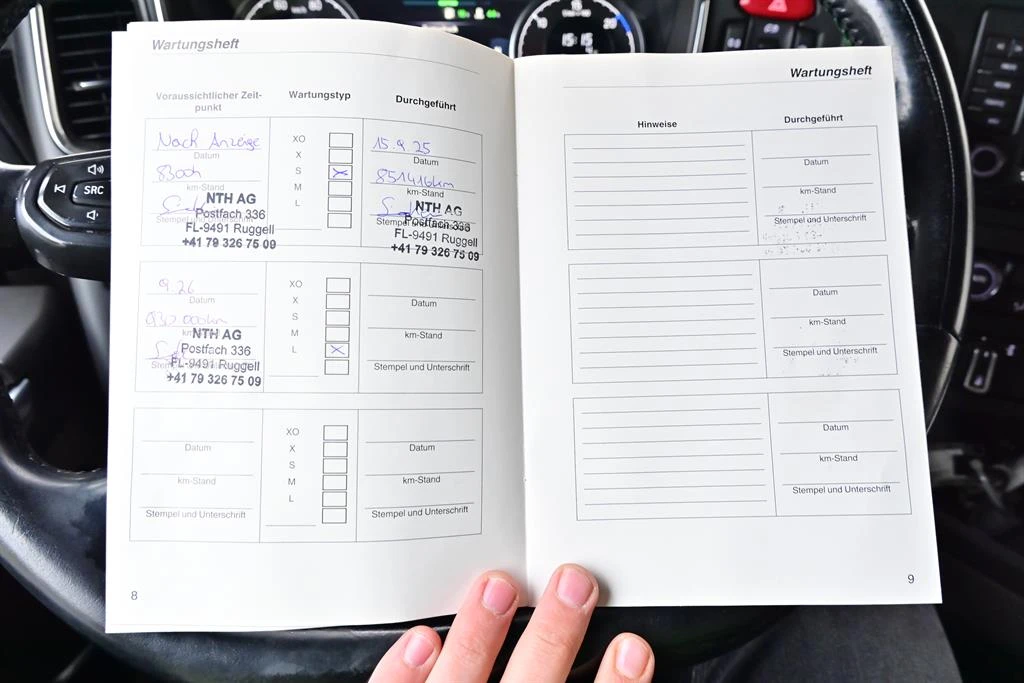 Wartungsheft
Voraussichtlicher Zeit-
punkt
Wartungstyp
Durchgeführt
Nach Anzeige
Datum
km-Stand
Stempel und Unterschrift
NTH AG
Postfach 336
FL-9491 Ruggell
+41 79 326 75 09
XO
X
S
M
L
15.9.25
Datum
851416km
km-Stand
Stempel und Unterschrift
NTH AG
Postfach 336
FL-9491 Ruggell
+41 79 326 75 09
9.26
Datum
NTH AG
Postfach 336
FL-9491 Ruggell
+41 79 326 75 09
XO
X
S
M
L
Datum
km-Stand
Stempel und Unterschrift
Datum
km-Stand
Stempel und Unterschrift
XO
X
S
M
L
Datum
km-Stand
Stempel und Unterschrift
8
Wartungsheft
Hinweise
Durchgeführt
Datum
km-Stand
Stempel und Unterschrift
Datum
km-Stand
Stempel und Unterschrift
Datum
km-Stand
Stempel und Unterschrift
9
SRC
15:15